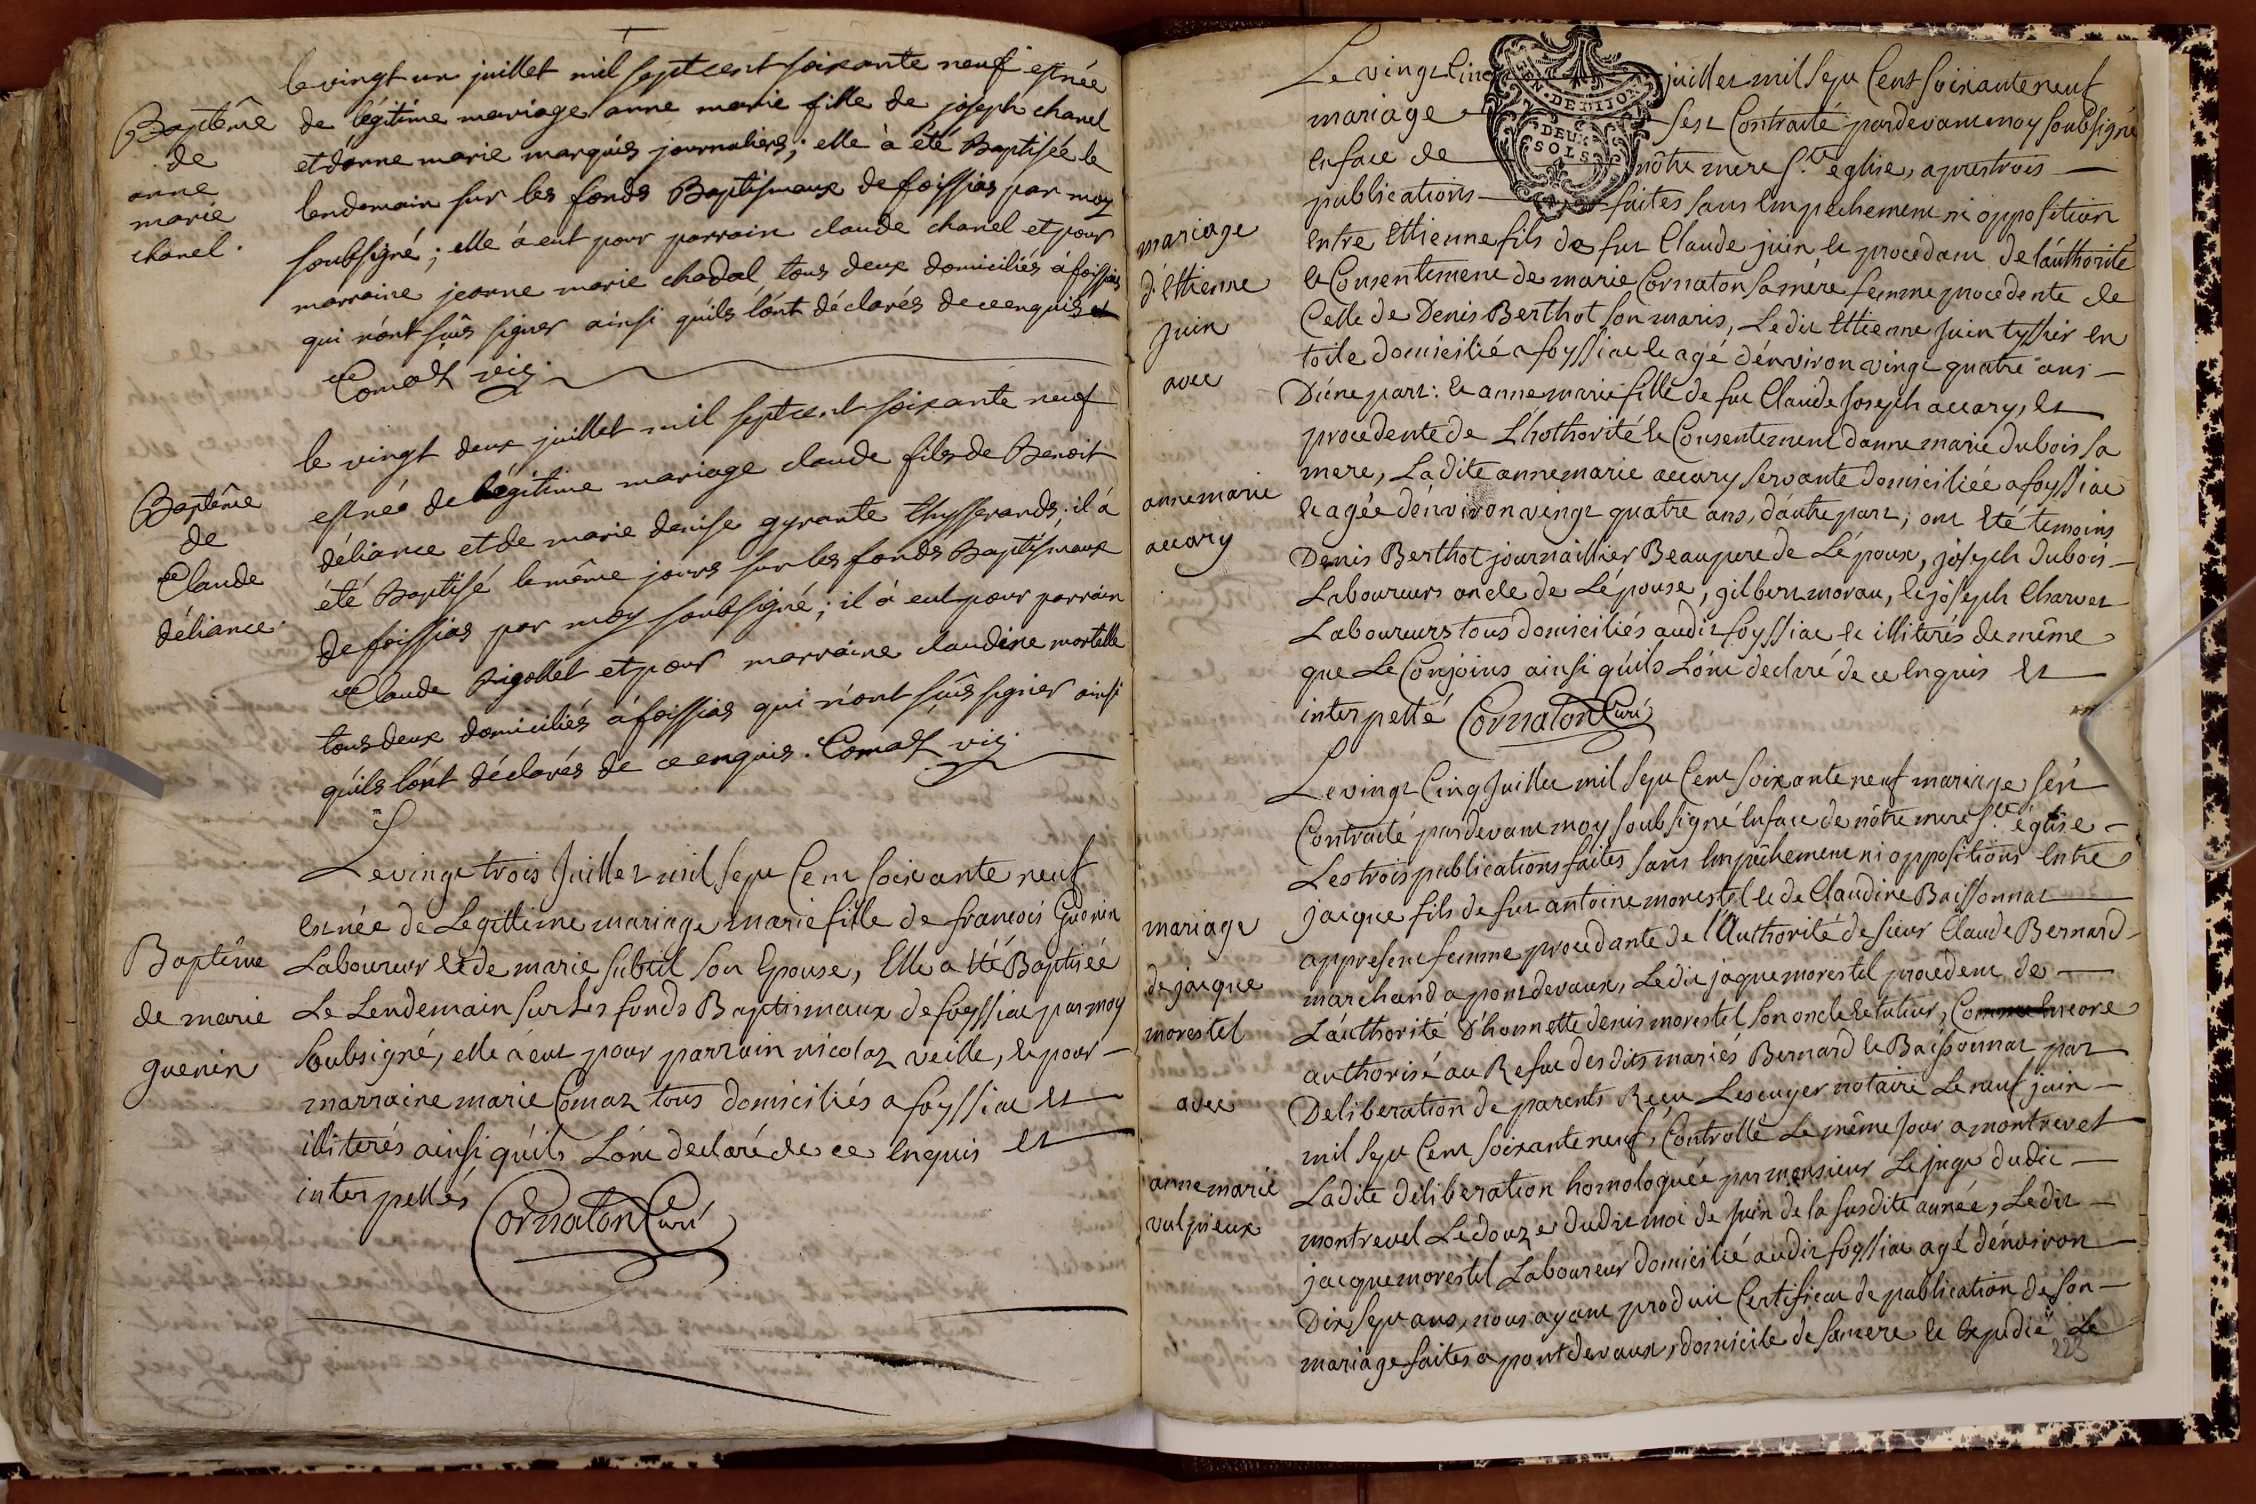 le vingt un juillet mil sept cent soixante neuf est née
de légitime mariage anne marie fille de joseph chanel
et d'anne marie marquis journaliers; elle à été Baptisée le
lendemain sur les fonds Baptismaux de foissias par moy
soubsigné; elle à eut pour parrain claude chanel et pour
marraine jeanne marie chadal, tous deux domiciliés à foissias
qui n'ont sûs signer ainsi qu'ils l'ont déclarés de ce enquis et
Comaz vic.
Baptême
de
anne
marie
chanel.
le vingt deux juillet mil sept cent soixante neuf
est née de légitime mariage claude fils de Benoit
déliance et de marie denise gyrante thysserands; il à
été Baptisé le même jours sur les fonds Baptismaux
de foissias par moy soubsigné; il à eut pour parrain
Claude Rigollet et pour marraine claudine mortelle
tous deux domiciliés à foissias qui n'ont sûs signer ainsi
qu'ils l'ont déclarés de ce enquis. Comaz vic.
Baptême
de
Claude
déliance.
Le vingt trois Juillet mil sept Cent soixante neuf
est née de Legittime mariage marie fille de francois Guenin
Laboureur & de marie subtil son Epouse, Elle a été Baptisée
Le Lendemain sur Les fonds Baptismaux de foyssiac par moy
soubsigné, elle a eut pour parrain nicolaz veille, & pour
marraine marie Comaz tous domiciliés a foyssiac et
illiterés ainsi qu'ils L'ont declaré de ce Enquis et
interpellés Cornaton Curé
Baptême
de marie
guenin
GEN. DE DIJON
DEUX
SOLS
Le vingt Cinq juillet mil sept Cent soixante neuf
mariage sest Contracté pardevant moy soubsigné
en face de nôtre mere Ste eglise, apres trois
publications faites sans Empechement ni opposition
entre Ettienne fils de fut Claude juin, & procedant de l'authorité
& Consentement de marie Cornaton sa mere femme procedente de
Celle de Denis Berthot son maris, Le dit Ettienne Juin tyssier en
toile domicilié a foyssiac & agé d'énviron vingt quatre ans
D'úne part: & anne marie fille de fut Claude Joseph accary, et
procedente de L'hothorité & Consentement danne marie dubois sa
mere, La dite anne marie accary servante domiciliée a foyssiac
& agée d'énviron vingt quatre ans, d'áutre part; ont Eté temoins
Denis Berthot journaillier Beaupere de L'époux, joseph dubois
Laboureurs oncle de L'épouse, gilbert morau, & joseph Charvet
Laboureurs tous domiciliés audit foyssiac & illiterés de même
que Le Conjoins ainsi qu'ils L'ont declaré de ce Enquis et
interpellé Cornaton Curé
mariage
d'Ettienne
Juin
avec
anne marie
accary
Le vingt Cinq Juillet mil sept Cent soixante neuf mariage s'ést
Contracté pardevant moy soubsigné En face de nôtre mere Ste église
Les trois publications faites sans Empêchement ni oppositions Entre
jacque fils de fut antoine morestel & de Claudine Boissonnat
appresent femme procedante de l'Authorité de sieur Claude Bernard
marchand a pont devaux, Le dit jaque morestel procedent de
L'áuthorité D'honnette denis morestel son oncle & tuteur, Comme Encore
authorisé au Refut desdits mariés Bernard & Boissonnat par
Deliberation de parents Recu Lescuyer notaire Le neuf juin
mil sept Cent soixante neuf, Controllé Le même Jour a montrevet
La dite déliberation homologuée par monsieur Le juge dudit
montrevel Le douze dudit moi de Juin de la susdite année, Le dit
jacque morestel Laboureur domicilié audit foyssiac agé d'énviron
Dix sept ans, nous ayant produit Certificat de publication de son
mariage faites a pont devaux, domicile de sa mere & Expedié Le
mariage
de jacque
morestel
avec
anne marie
vulpieux
223